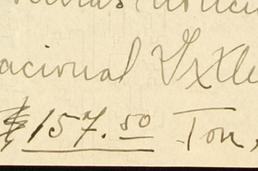 acional Ixtle
$157.50 Ton,